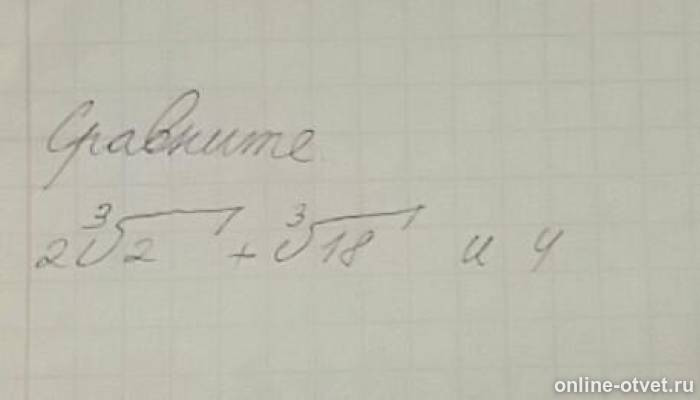 Сравните
2∛2 + ∛18 и 4
online-otvet.ru